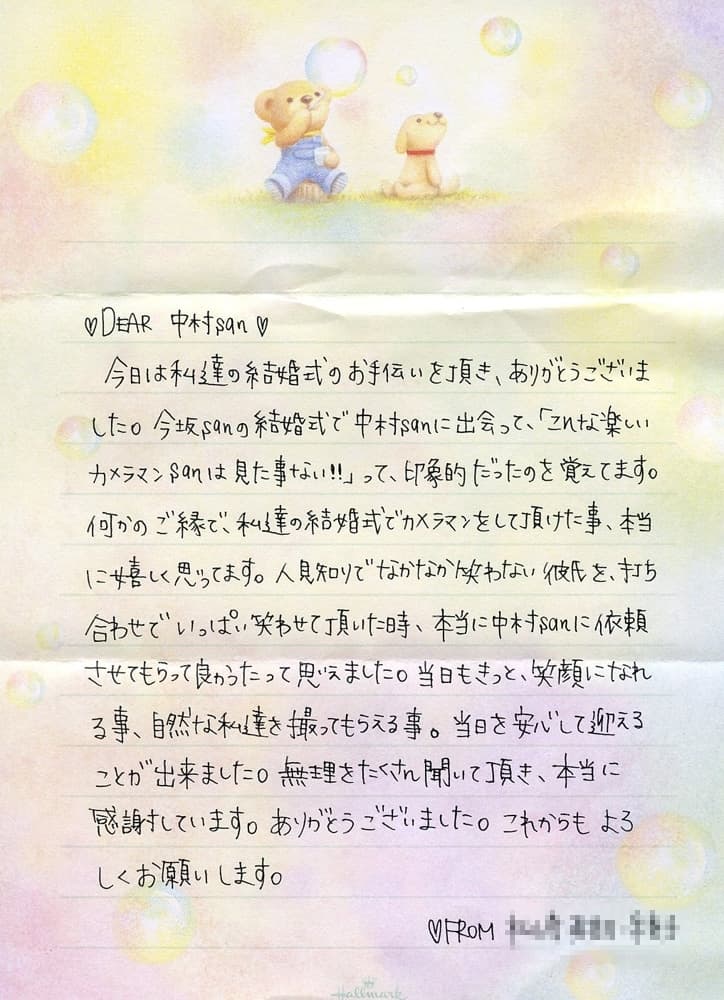 ♡DEAR 中村san♡
今日は私達の結婚式のお手伝いを頂き、ありがとうございま
した。今坂sanの結婚式で中村sanに出会って、「こんな楽しい
カメラマンsanは見た事ない!!」って、印象的だったのを覚えてます。
何かのご縁で、私達の結婚式でカメラマンをして頂けた事、本当
に嬉しく思ってます。人見知りでなかなか笑わない彼氏を、打ち
合わせでいっぱい笑わせて頂いた時、本当に中村sanに依頼
させてもらって良かったって思えました。当日もきっと、笑顔になれ
る事、自然な私達を撮ってもらえる事。当日を安心して迎える
ことが出来ました。無理をたくさん聞いて頂き、本当に
感謝しています。ありがとうございました。これからもよろ
しくお願いします。
♡FROM
Hallmark